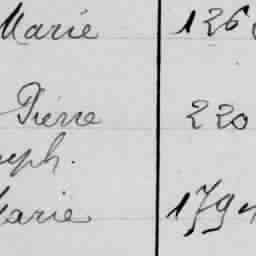 Marie 126
Pierre 220
seph.
Marie 179